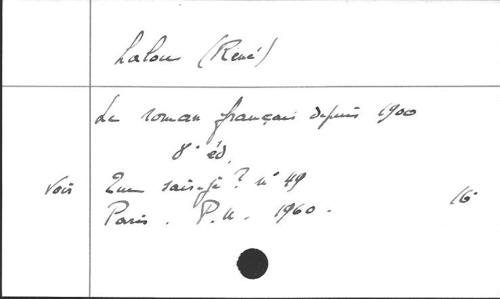 Lalou (René)
Le roman français depuis 1900
8° éd.
Voir Que sais-je? n° 49
Paris. P.U. 1960. 16°